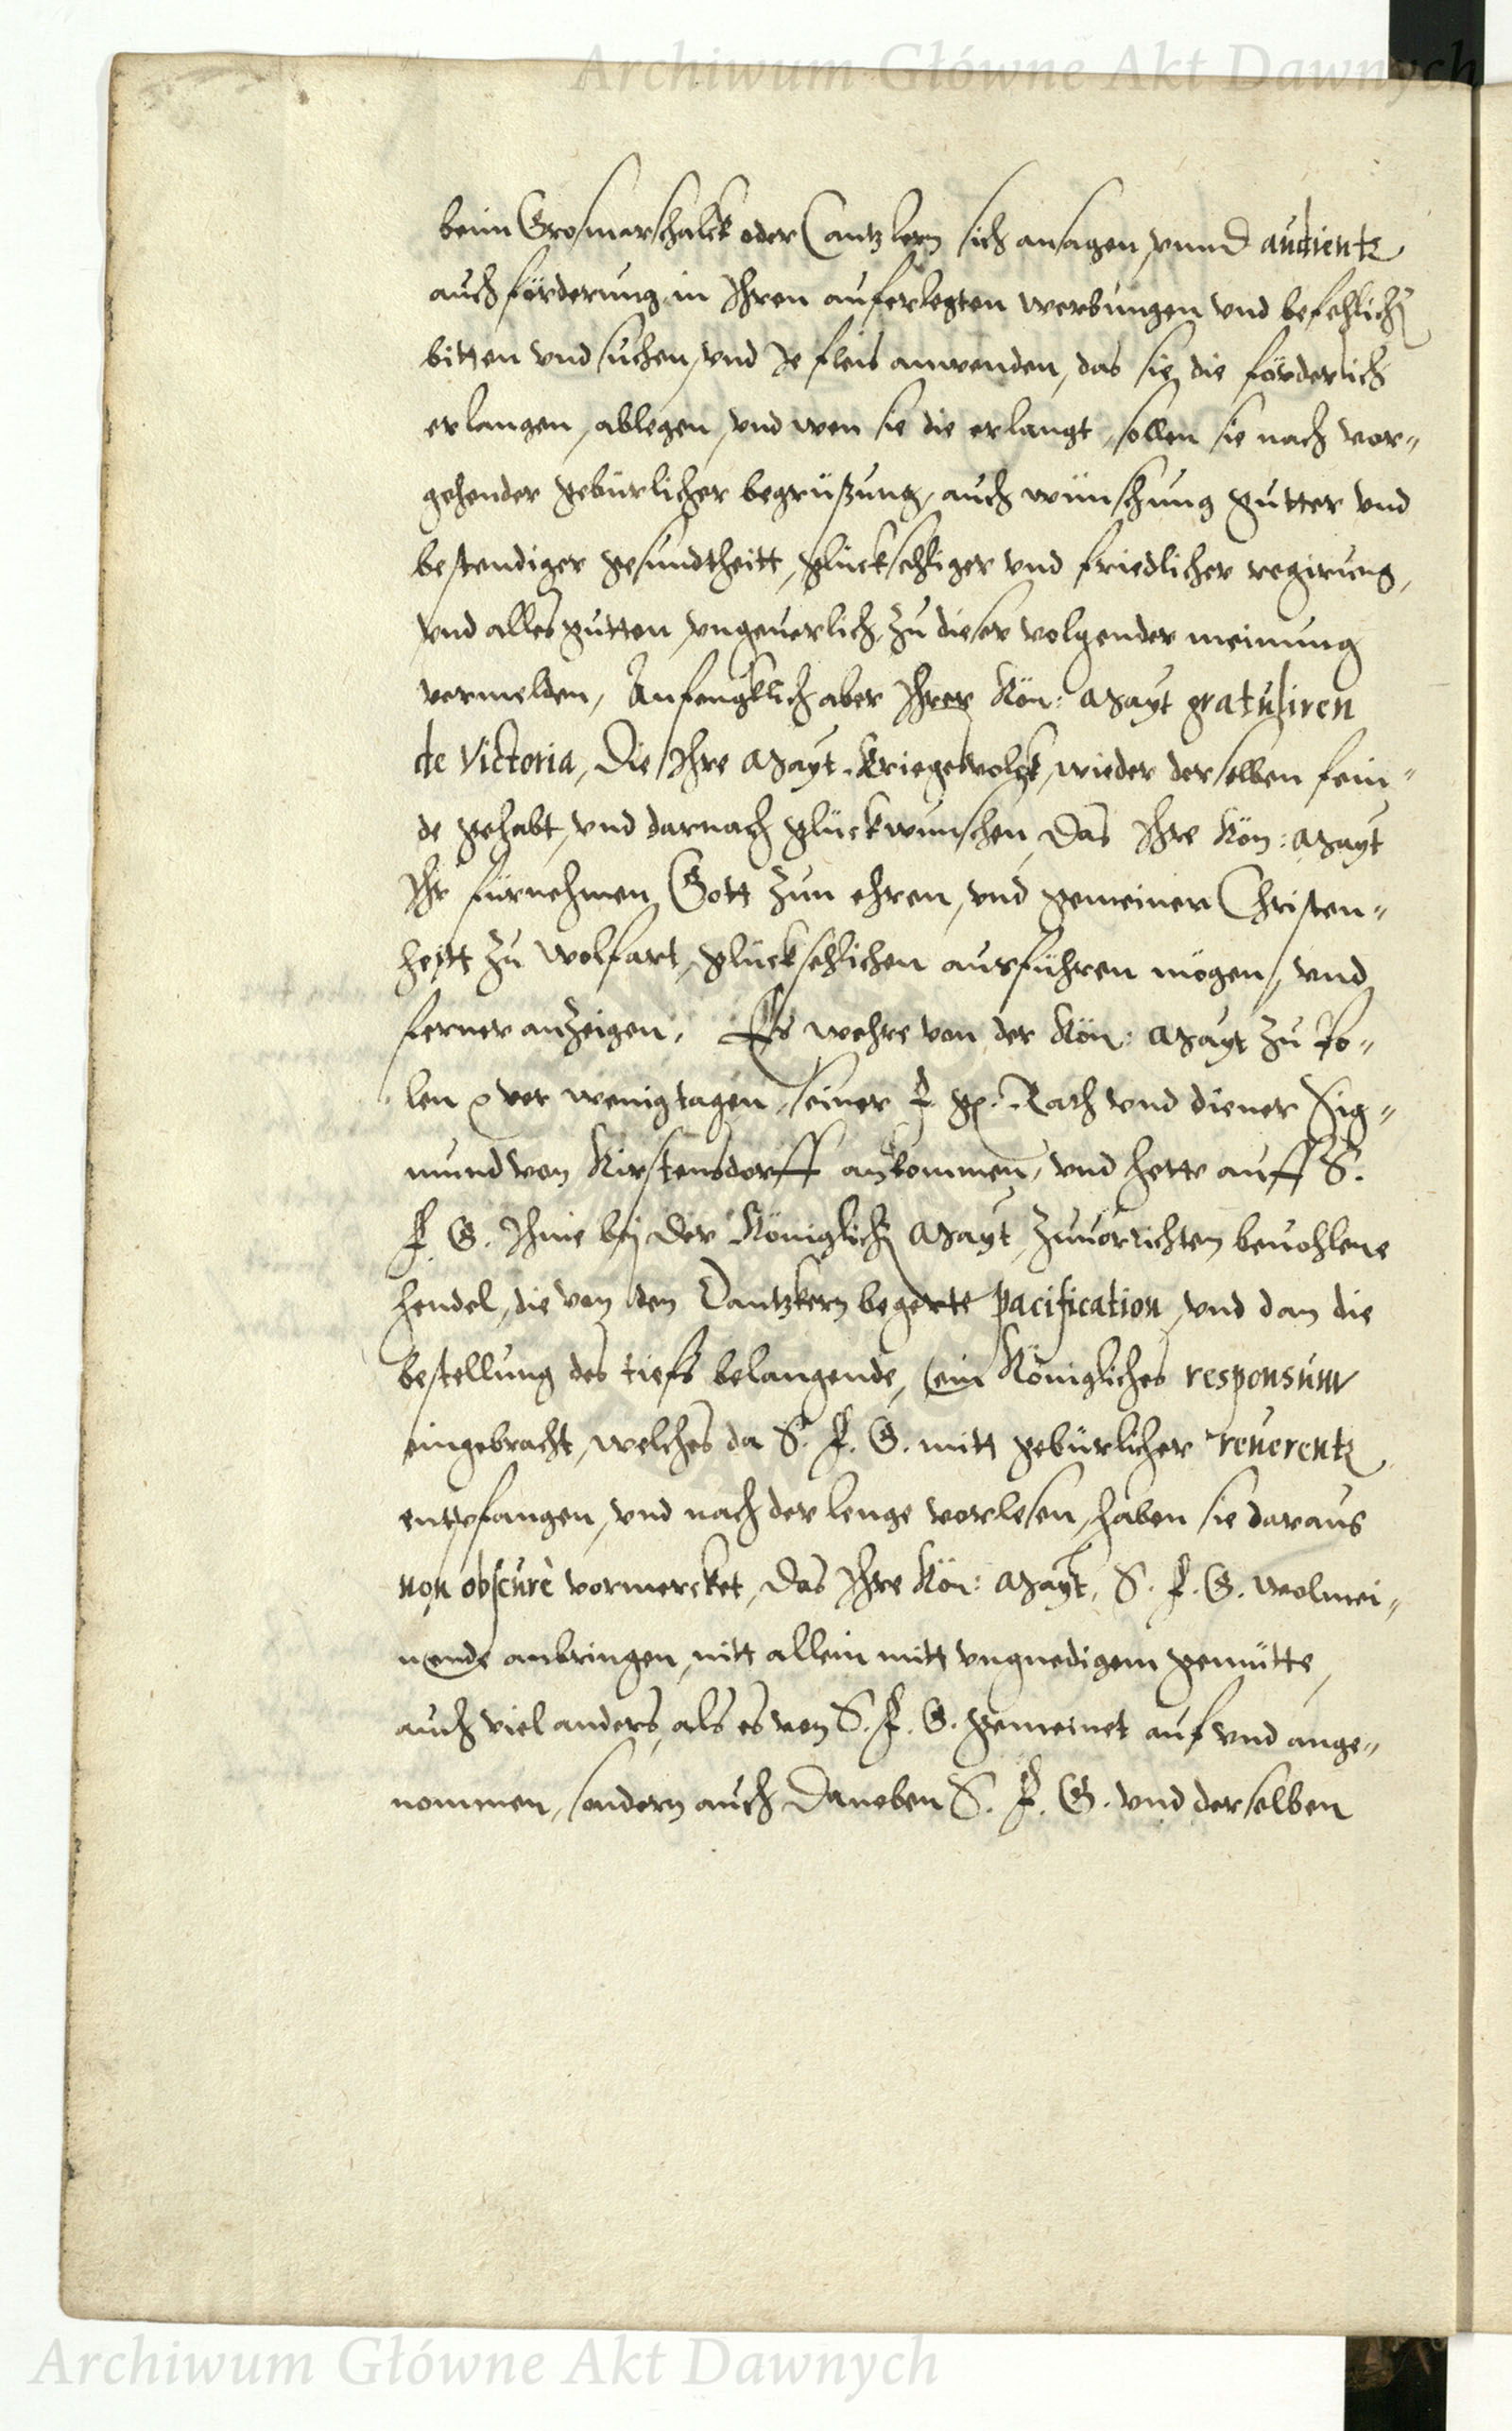 Archiwum Główne Akt Dawnych
beim Grosmarschalck oder Cantzlern sich ansagen, vnnd audientz
auch förderung in Ihren auferlegten werbungen vnd befehlich
bitten vnd suchen, vnd Je fleis anwenden, das sie die förderlich
erlangen, ablegen, vnd wen sie die erlangt, sollen sie nach vor-
gehender gebürlicher begrüßung, auch wünschung gutter vnd
bestendiger gesundtheitt, glückseliger vnd friedlicher regirung,
vnd alles gutten, vngeuerlich zu dieser volgender meinung
vermelden, Anfengklich aber Ihrer Kön: Mayt gratuliren
de Victoria, Die Ihre Mayt Kriegesvolck, wieder derselben fein-
de gehabt, vnd darnach glückwunschen, Das Ihre Kön: Mayt
Ihr fürnehmen Gott zun ehren, vnd gemeiner Christen-
heitt zu wolfart, glückselichen ausführen mögen, vnd
ferner anzeigen, Es wehre von der Kön: Mayt zu Po-
len vor wenig tagen, seiner f. g. Rath vnd diener Sig-
mund von Kirstensdorff ankommen, vnd hette auff S.
F. G. Ihme bej der Königlich Mayt zuuorrichten beuohlene
hendel, die von den Dantzkern begerte pacification, vnd dan die
bestellung des tiefs belangende, ein Königliches responsum
eingebracht, welches da S. F. G. mitt gebürlicher reuerentz
entpfangen, vnd nach der lenge vorlesen, haben sie daraus
non obscurè vormercket, das Ihre Kön: Mayt, S. F. G. wolmei-
nende anbringen, nitt allein mitt vngnedigem gemütte,
auch viel anders, als es von S. F. G. gemeinet auf vnd ange-
nommen, sondern auch Daneben S. F. G. vnd derselben
Archiwum Główne Akt Dawnych